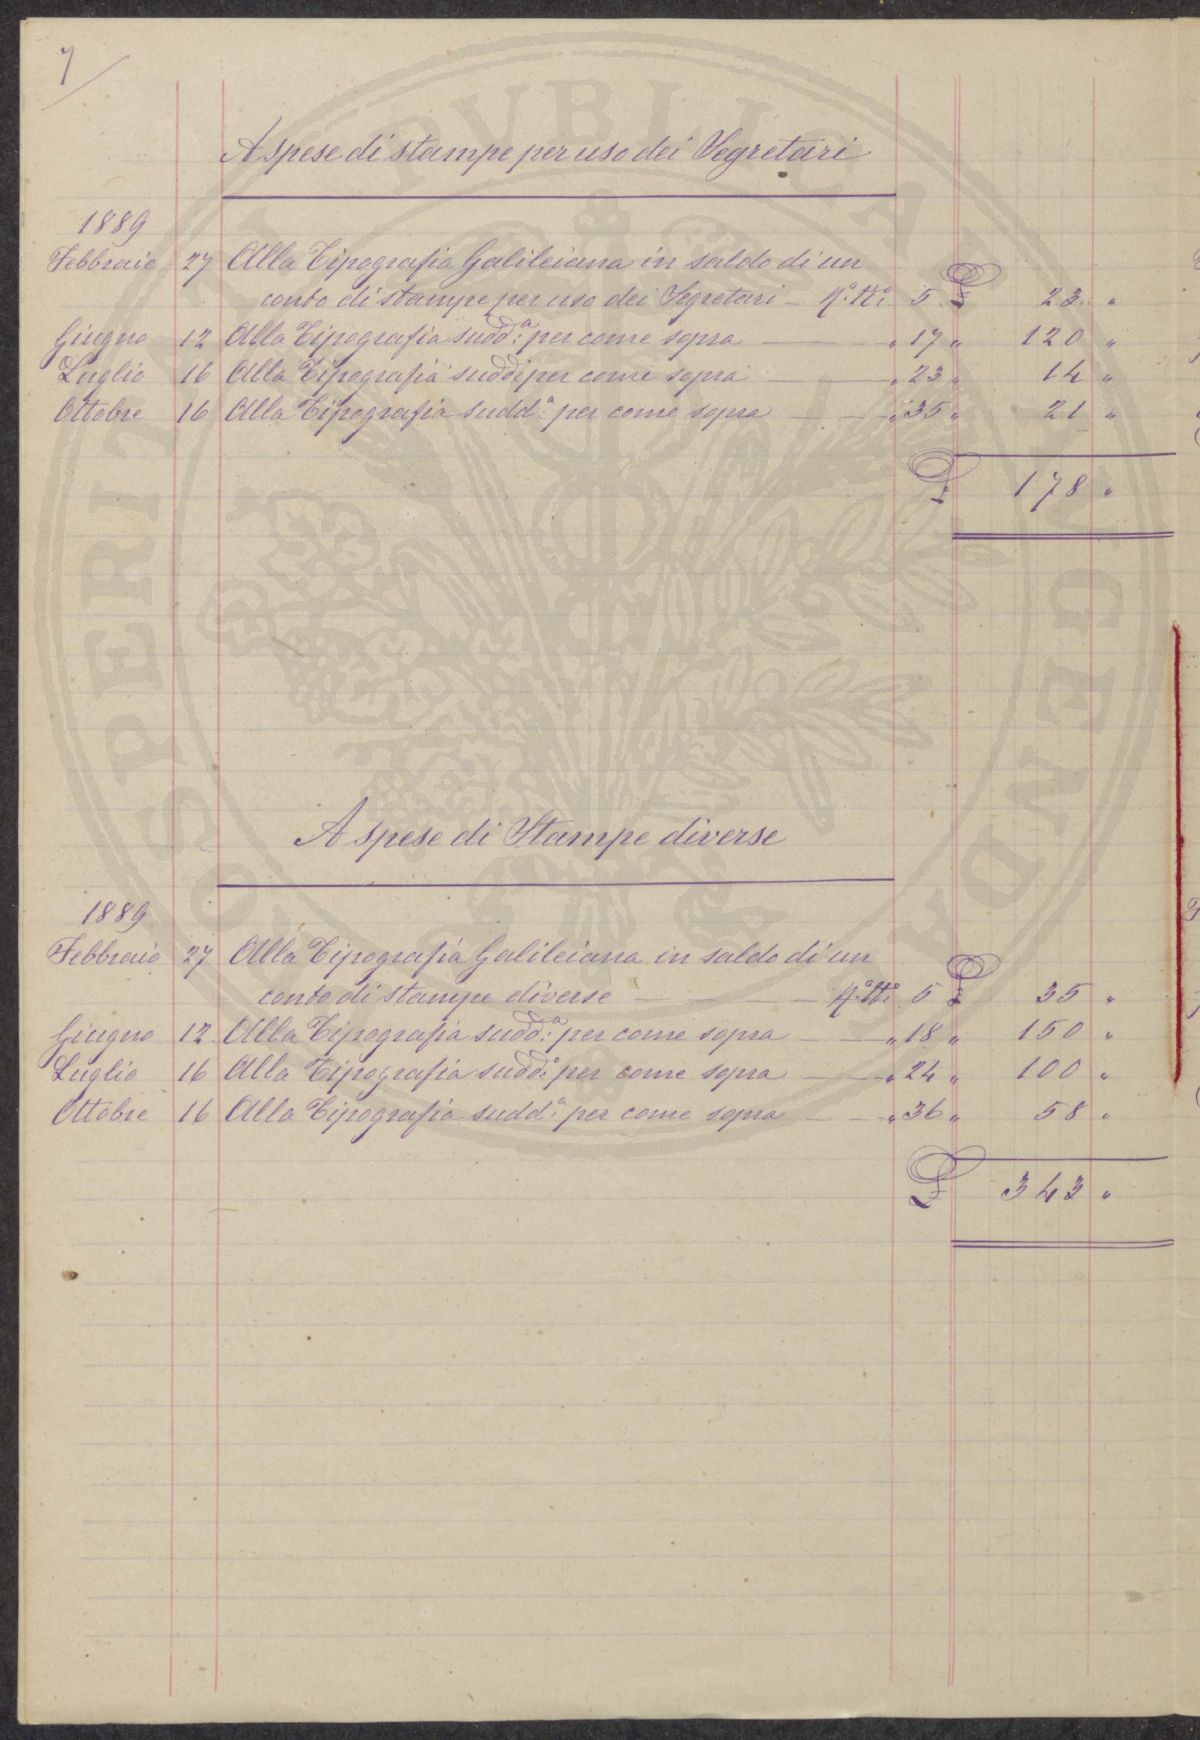 7
A spese di stampe per uso dei Segretari
1889
Febbraio 27 Alla Tipografia Galileiana in saldo di un
conto di stampe per uso dei Segretari 5 £ 23 "
Giugno 12 Alla Tipografia sudd.a per come sopra " 17 " 120 "
Luglio 16 Alla Tipografia sudd. per come sopra " 23 " 14 "
Ottobre 16 Alla Tipografia sudd.a per come sopra " 35 " 21 "
£ 178 "
A spese di Stampe diverse
1889
Febbraio 27 Alla Tipografia Galileiana in saldo di un
conto di stampe diverse 5 £ 35 "
Giugno 12 Alla Tipografia sudd.a per come sopra " 18 " 150 "
Luglio 16 Alla Tipografia sudd.a per come sopra " 24 " 100 "
Ottobre 16 Alla Tipografia sudd.a per come sopra " 36 " 58 "
£ 343 "
PROSPERITATI PVBLICAE AVGENDAE